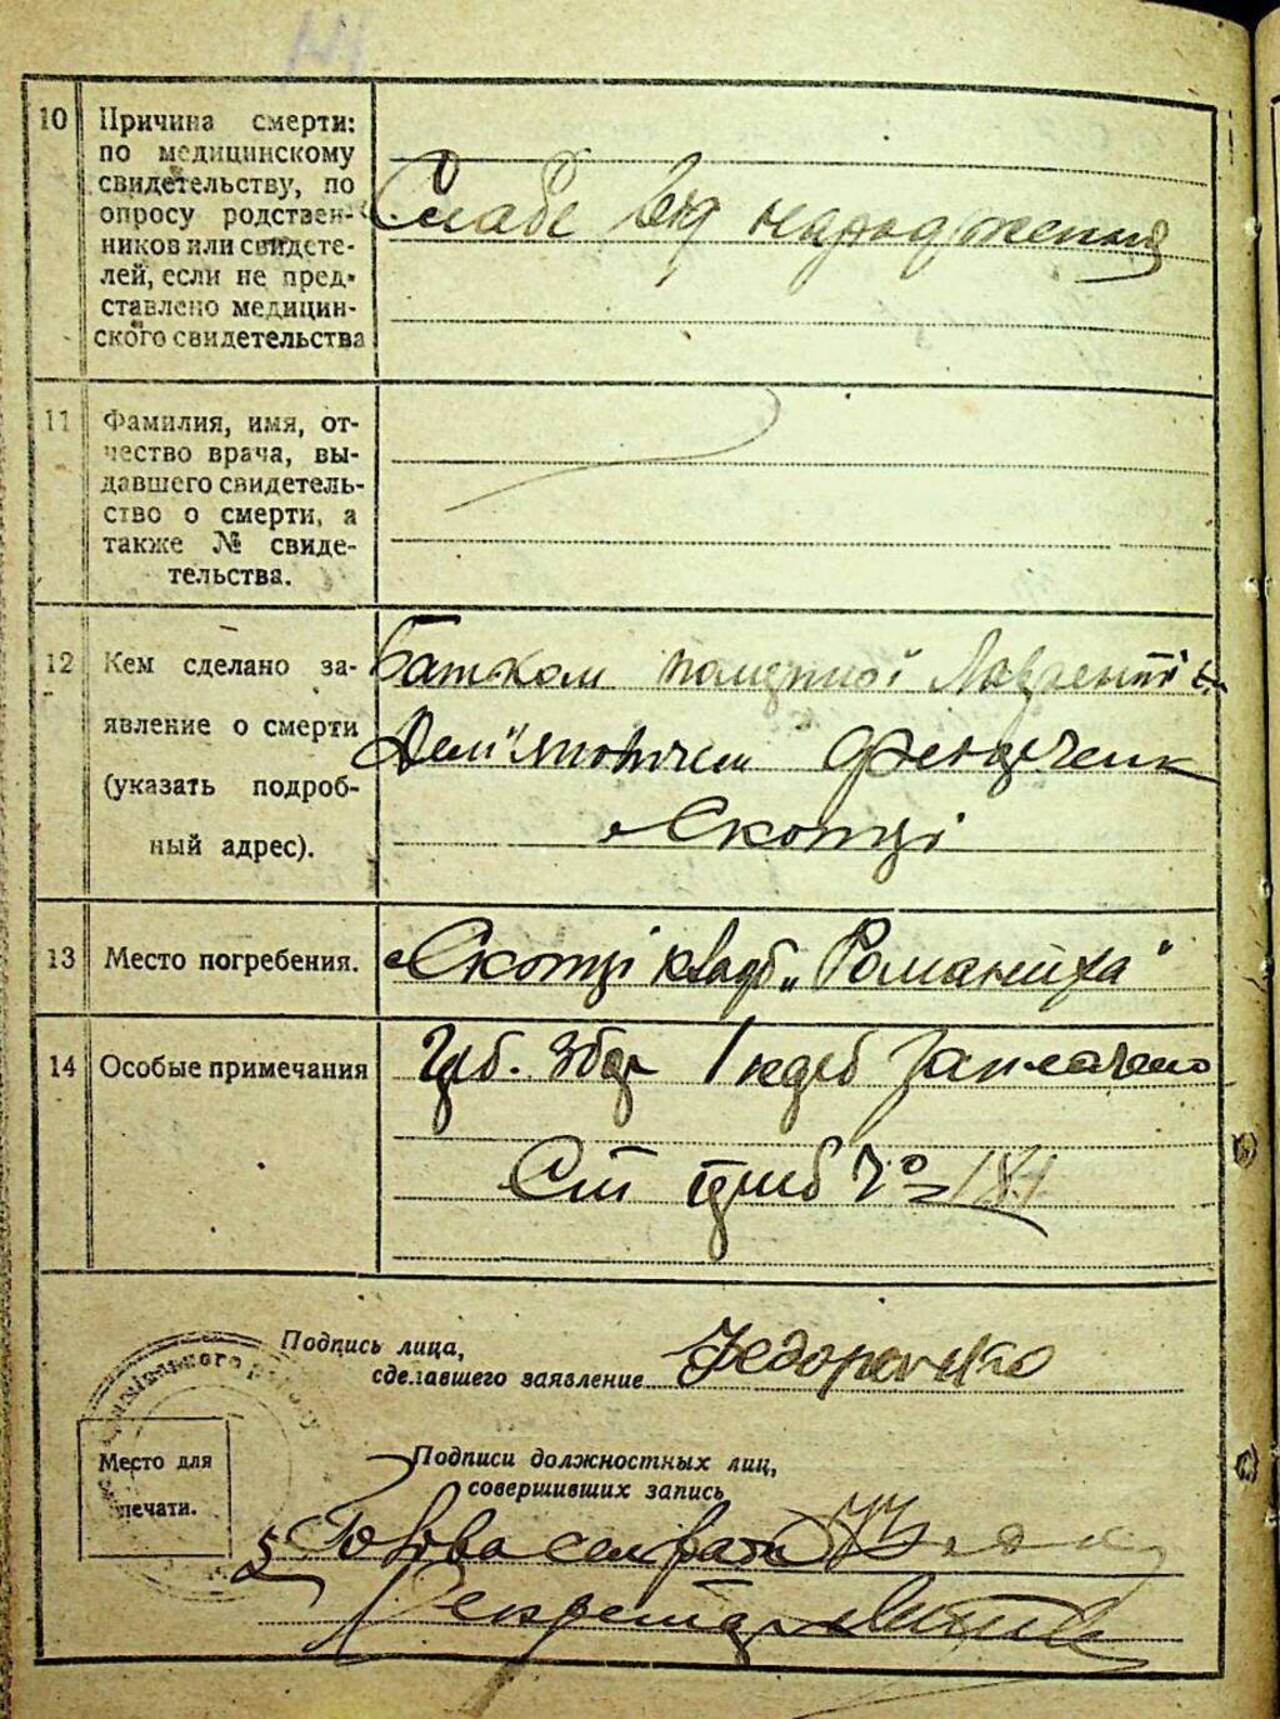 10 Причина смерти:
по медицинскому
свидетельству, по
опросу родствен-
ников или свидете-
лей, если не пред-
ставлено медицин-
ского свидетельства
Слабе від народження
11 Фамилия, имя, от-
чество врача, вы-
давшего свидетель-
ство о смерти, а
также № свиде-
тельства.
12 Кем сделано за-
явление о смерти
(указать подроб-
ный адрес).
Батьком померлої
Дем"яновичем
13 Место погребения.
кладб „Романиха"
14 Особые примечания
заплачено
Подпись лица,
сделавшего заявление
Подписи должностных лиц,
совершивших запись
Место для
печати.
Голова сельради
Секретар